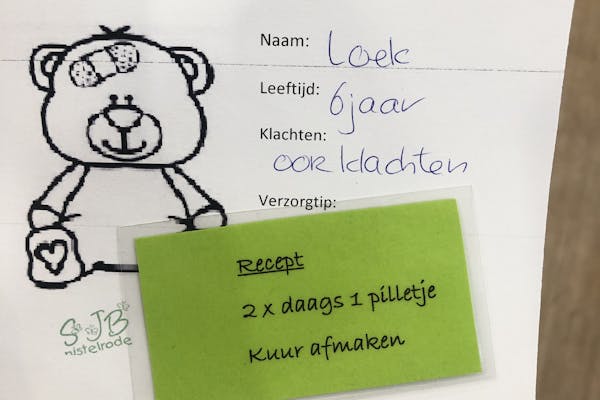 Naam: Loek
Leeftijd: 6 jaar
Klachten:
oor klachten
Verzorgtip:
Recept
2 x daags 1 pilletje
Kuur afmaken
SJB
nistelrode